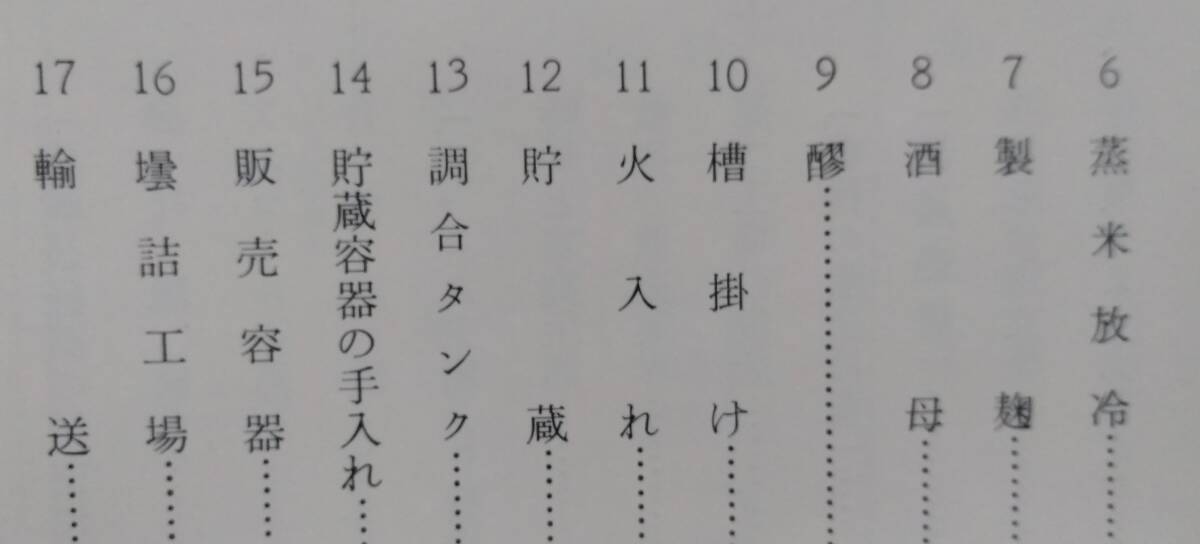 6 蒸米放冷……
7 製麹……
8 酒母……
9 醪……
10 槽掛け……
11 火入れ……
12 貯蔵……
13 調合タンク……
14 貯蔵容器の手入れ……
15 販売容器……
16 壜詰工場……
17 輸送……